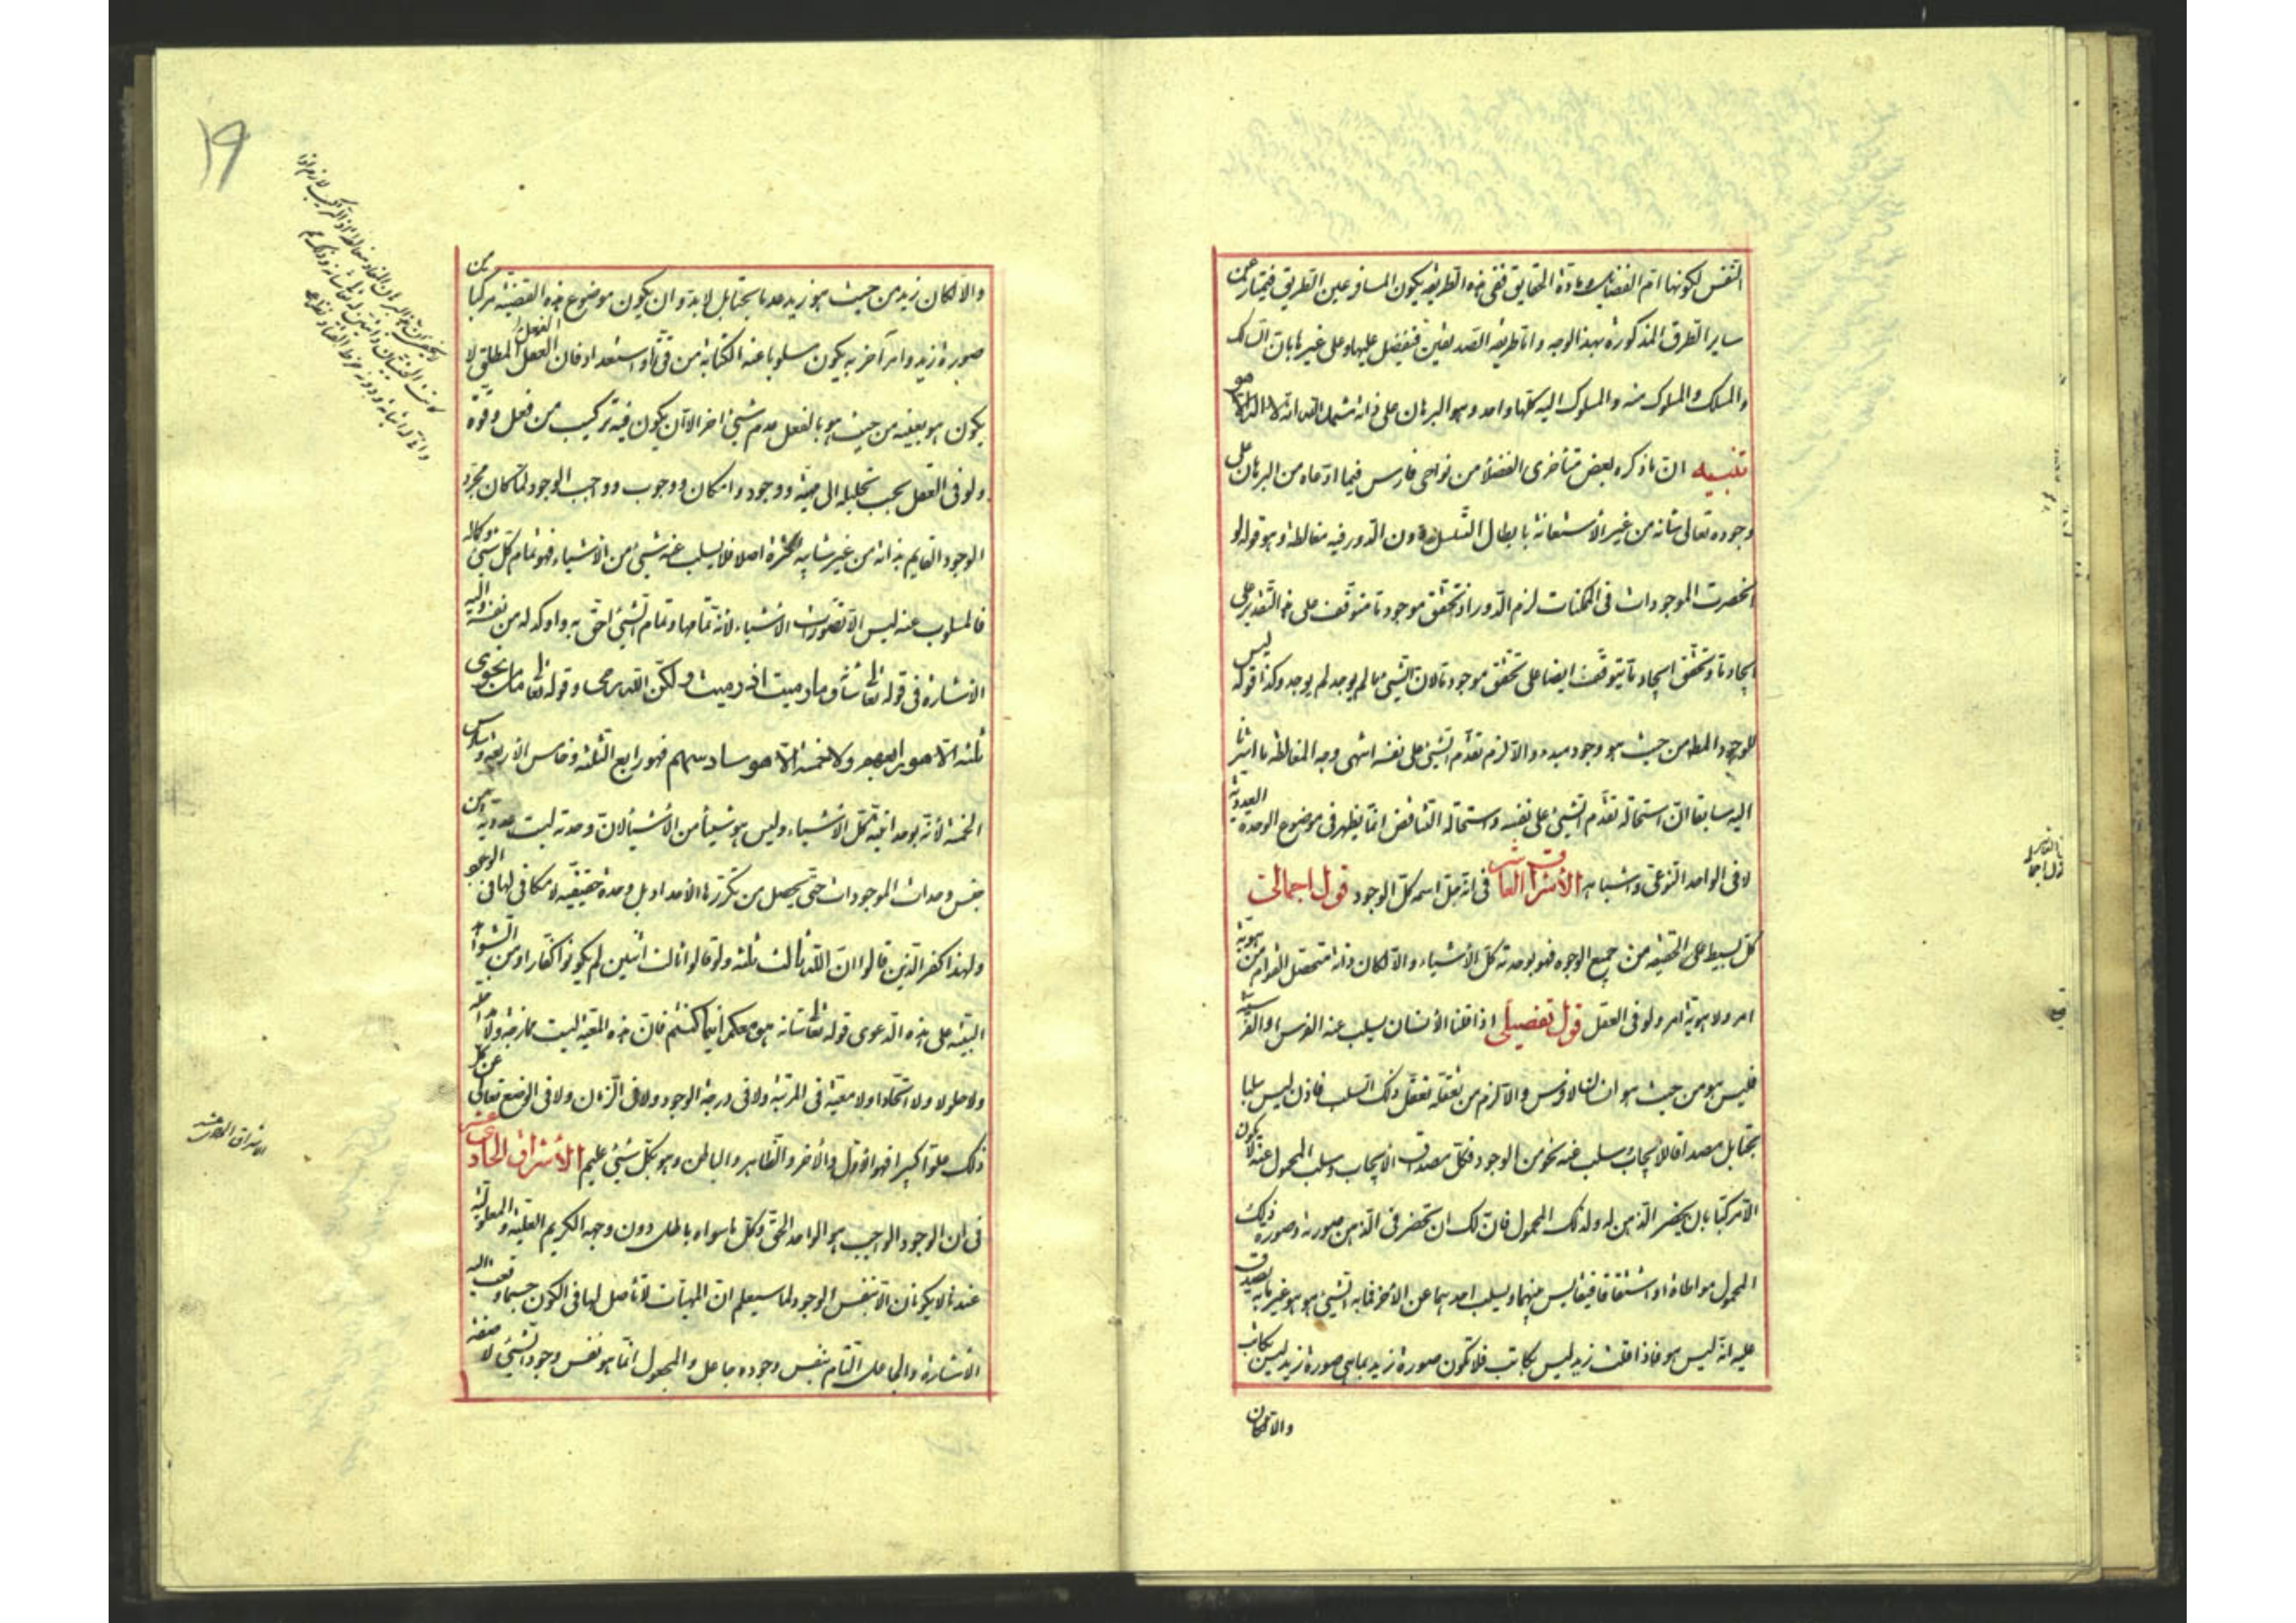 النفس لكونها ام الفضايل ومادة الحقايق ففى هذه الطريقة يكون المسافر عين الطريق فيمتاز عن
ساير الطرق المذكورة بهذا الوجه واما طريقة الصديقين فتفضل عليها وعلى غيرها بان السالك
والمسلك والمسلوك منه والمسلوك اليه كلها واحد وهو البرهان على ذاته شهد الله انه لا اله الا هو
تنبيه ان ما ذكره بعض متأخرى الفضلا من نواحى فارس فيما ادعاه من البرهان على
وجوده تعالى شانه من غير الاستعانة بابطال التسلسل دون الدور فيه مغالطة وهو قوله لو
انحصرت الموجودات فى الممكنات لزم الدور اذ تحقق موجود ما متوقف على هذا التقدير على
ايجاد ما وتحقق ايجاد ما يتوقف ايضا على تحقق موجود ما لان الشئ ما لم يوجد لم يوجد وكذا قوله ليس
للوجود المط من حيث هو وجود مبدء والا لزم تقدم الشئ على نفسه انتهى وجه المغالطة ما اشرنا
اليه سابقا ان استحالة تقدم الشئ على نفسه واستحالة التناقض انما يظهر فى موضوع الوحدة العددية
لا فى الواحد النوعى واشباهه الأشراق العاشر فى انه جل اسمه كل الوجود قول اجمالى
كل بسيط على الحقيقة من جميع الوجوه فهو بوحدته كل الأشياء والا لكان ذاته متحصل القوام من هوية
امر ولا هوية امر ولو فى العقل قول تفصيلى اذا قلنا الأنسان يسلب عنه الفرس او الفرسية
فليس هو من حيث هو انسان لا فرس والا لزم من تعقله تعقل ذلك السلب فاذن ليس سلبا
بحتا بل مصداقا لايجاب وسلب عنه نحو من الوجود فكل مصداق الايجاب وسلب المحمول عنه لا يكون
الا مركبا بان يحضر الذهن له ولذلك المحمول فان لك ان تحضر فى الذهن صورته وصورة ذلك
المحمول مواطاة او اشتقاقا فيقايس بينهما ويسلب احدهما عن الاخر فما به الشئ هو هو غير ما به يصدق
عليه انه ليس هو فاذا قلت زيد ليس بكاتب فلا تكون صورة زيد بما هى صورة زيد ليس بكاتب
والا لكان
١٩
والا لكان زيد من حيث هو زيد عدما بحتا بل لابد وان يكون موضوع هذه القضية مركبا من
صورة زيد وامر آخر به يكون مسلوبا عنه الكتابة من قوة او استعداد فان الفعل المطلق لا
يكون هو بعينه من حيث هو بالفعل عدم شئ اخر الا ان يكون فيه تركيب من فعل وقوة
ولو فى العقل بحسب تحليله الى مهية ووجود وامكان ووجوب وواجب الوجود لما كان مجرد
الوجود القايم بذاته من غير شايبة كثرة اصلا فلا يسلب عنه شئ من الاشياء فهو تمام كل شئ وكماله
فالمسلوب عنه ليس الا قصورات الاشياء لانه تمامها وتمام الشئ احق به واوكد له من نفسه واليه
الاشارة فى قوله تعا شانه وما رميت اذ رميت ولكن الله رمى وقوله تعا ما من نجوى
ثلثة الا هو رابعهم ولا خمسة الا هو سادسهم فهو رابع الثلثة وخامس الاربعة وسادس
الخمسة لأنه بوحدانيته كل الاشياء وليس هو شيئا من الأشياء لان وحدته ليست عددية من
جنس وحدات الموجودات حتى يحصل من تكررها الأعداد بل وحدة حقيقية لا مكافى لها فى الوجود
ولهذا كفر الذين قالوا ان الله ثالث ثلثة ولو قالوا ثالث اثنين لم يكونوا كفارا ومن الشواهد
البينة على هذه الدعوى قوله تعا شانه هو معكم اينما كنتم فان هذه المعية ليست ممازجة ولا مداخلة
ولا حلولا ولا اتحادا ولا معية فى المرتبة ولا فى درجة الوجود ولا فى الزمان ولا فى الوضع تعالى عن كل
ذلك علوا كبيرا فهو الأول والأخر والظاهر والباطن وهو بكل شئ عليم الأشراق الحادى عشر
فى ان الوجود الواجب هو الواحد الحق وكل ما سواه باطل دون وجهه الكريم العلية والمعلولية
عندنا لا يكونان الا بنفس الوجود لما سيعلم ان المهيات لا تأصل لها فى الكون حسبما وقعت اليه
الاشارة والجاعل التام بنفس وجوده جاعل والمجعول انما هو نفس وجود الشئ لا صفة
الاشراق الحادى عشر